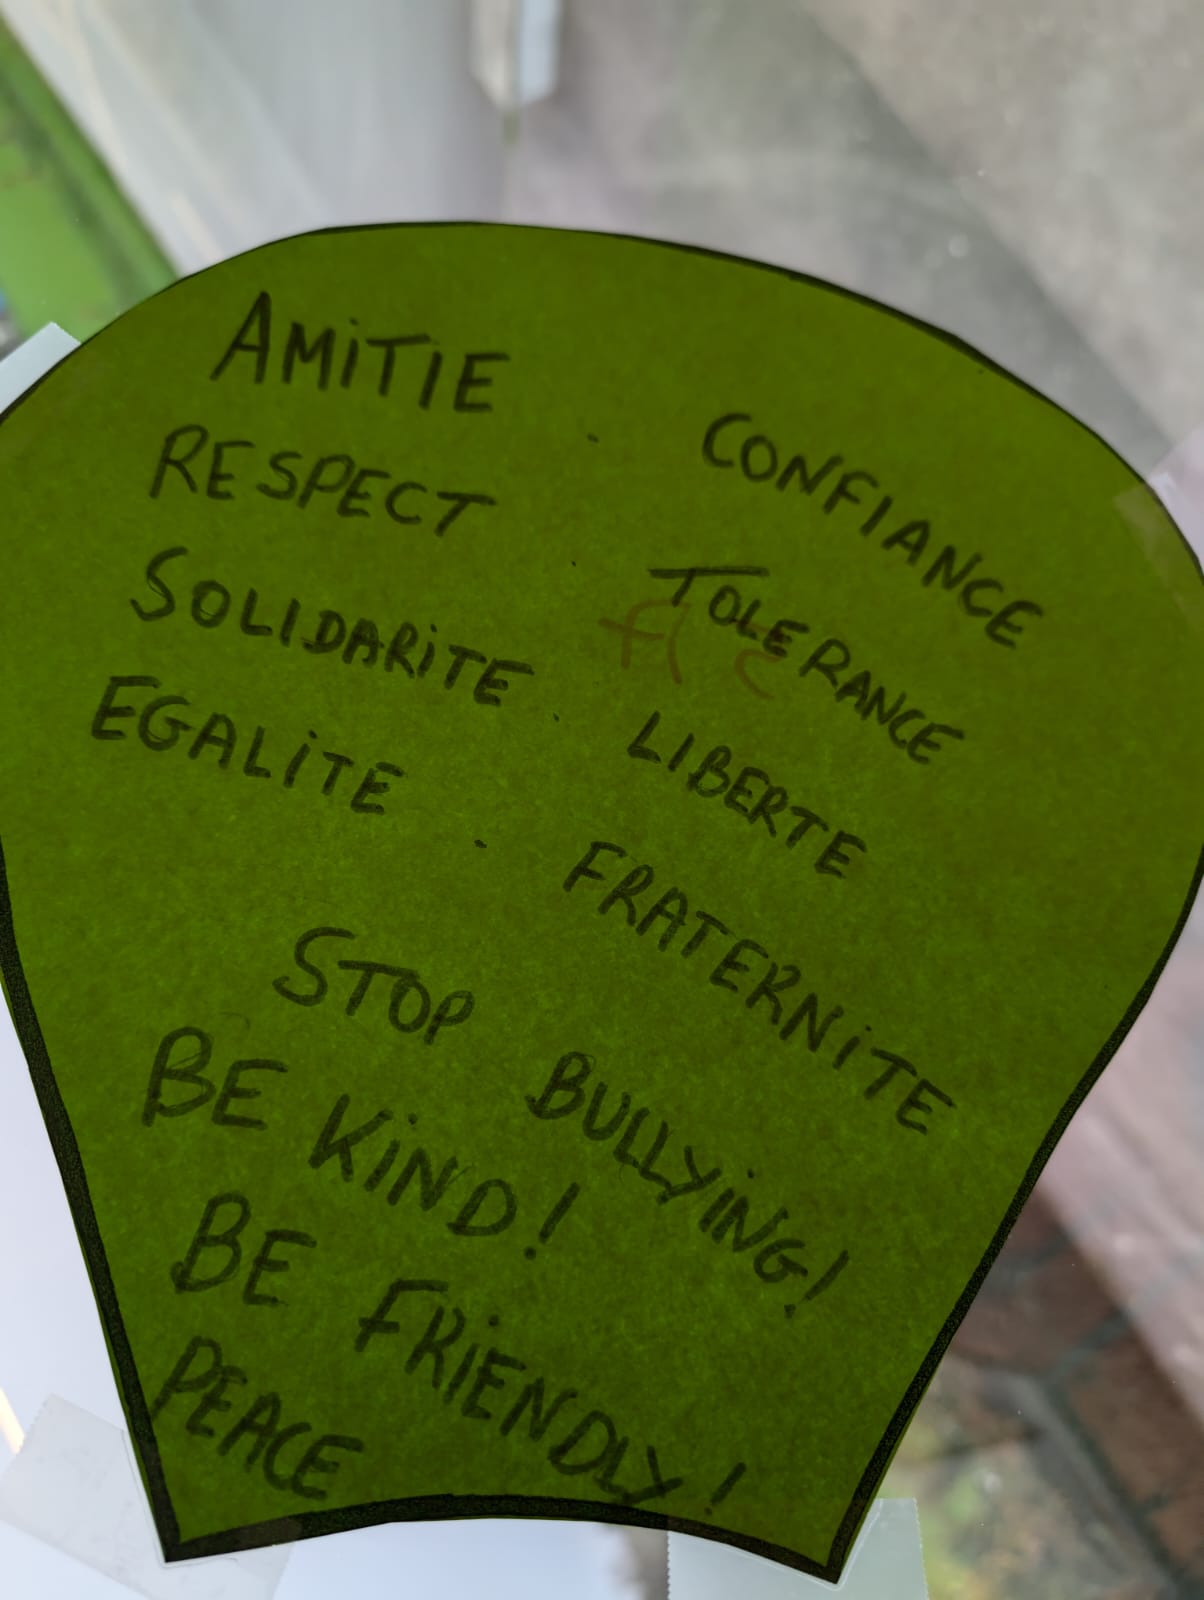 AMiTIE . CONFIANCE
RESPECT . TOLERANCE
SOLIDARiTE . LIBERTE
EGALiTE . FRATERNiTE
STOP BULLYiNG!
BE KiND!
BE FRiENDLY!
PEACE